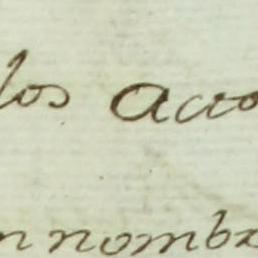 los acto
n nombr